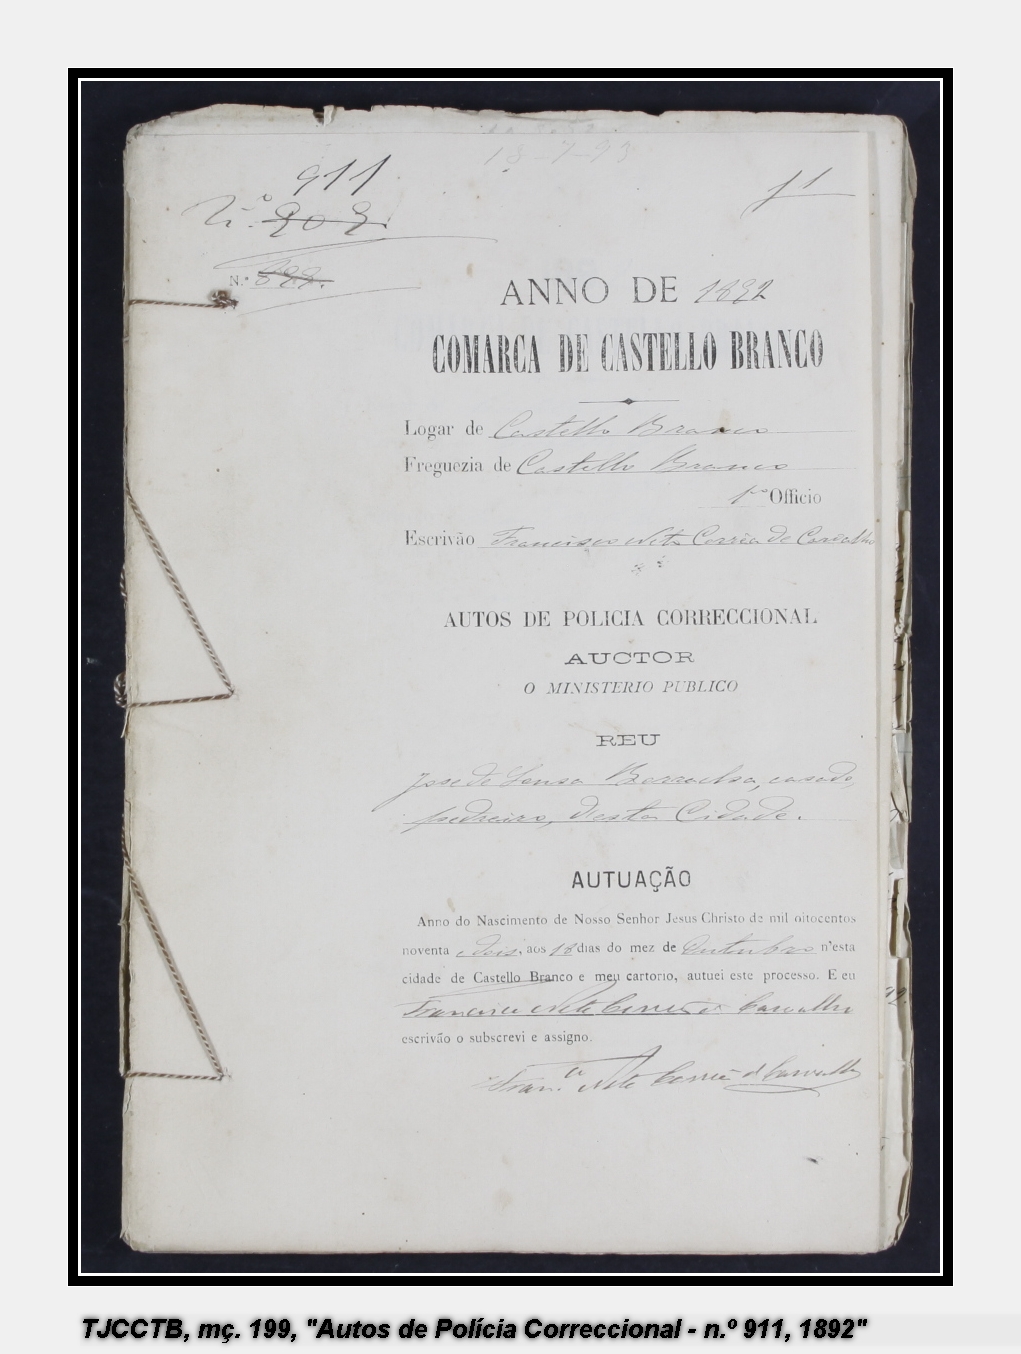 18-7-93
911
N.º 909.
f 1
N.º 888.
ANNO DE 1892
COMARCA DE CASTELLO BRANCO
Logar de Castello Branco
Freguezia de Castello Branco
1.º Officio
Escrivão Francisco Neto Corrêa de Carvalho
AUTOS DE POLICIA CORRECCIONAL
AUCTOR
O MINISTERIO PUBLICO
REU
José de Sousa Barrocha, casado,
pedreiro, d'esta Cidade.
AUTUAÇÃO
Anno do Nascimento de Nosso Senhor Jesus Christo de mil oitocentos
noventa e dois, aos 18 dias do mez de Outubro n'esta
cidade de Castello Branco e meu cartorio, autuei este processo. E eu
Francisco Neto Corrêa de Carvalho
escrivão o subscrevi e assigno.
Fran.co Neto Corrêa d' Carvalho
TJCCTB, mç. 199, "Autos de Polícia Correccional - n.º 911, 1892"